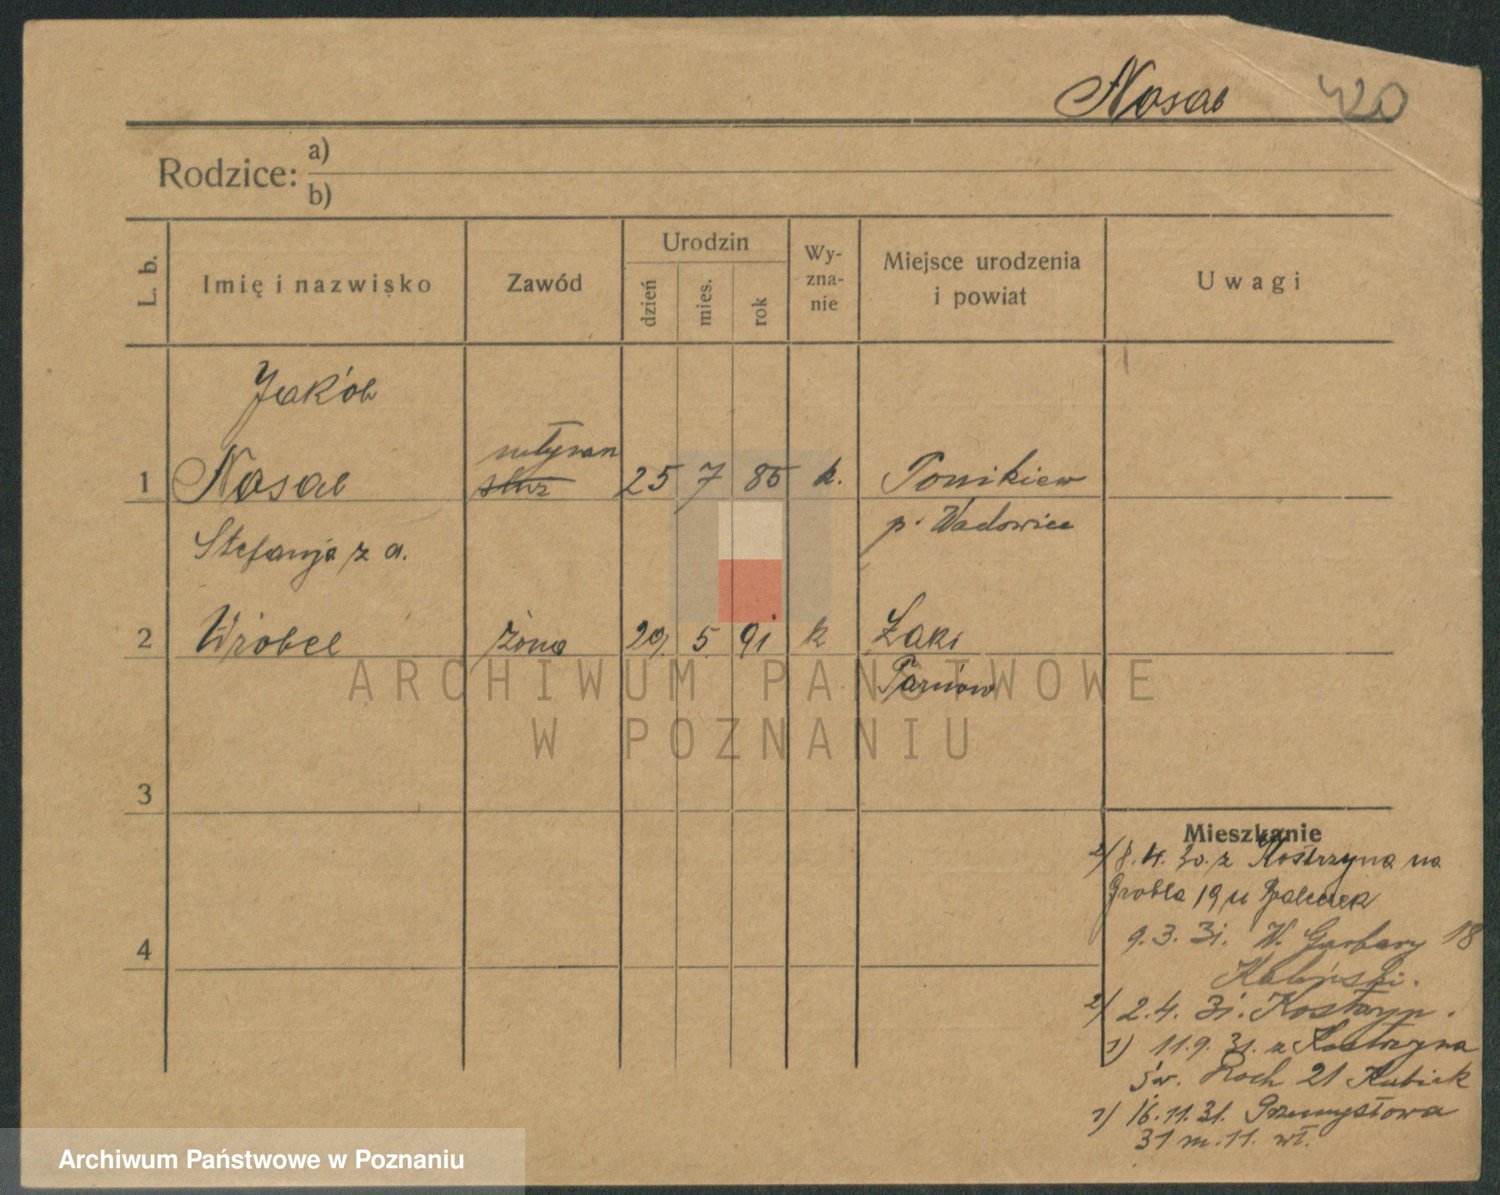 Nosal 420
Rodzice: a)
b)
L. b.
Imię i nazwisko
Zawód
Urodzin
dzień
mies.
rok
Wy-
zna-
nie
Miejsce urodzenia
i powiat
Uwagi
Jakób
1 Nosal 25 7 85 k. Ponikiew
p. Wadowice
Stefanja z d.
2 Wróbel żona 29. 5. 91 k Łaki
Tarnow
3
4
Mieszkanie
2) 8.4.30. z Kostrzyna na
Grobla 19 u
9.3.31. W. Garbary 18
2) 2.4.31. Kostrzyn.
1) 11.9.31. z Kostrzyna
św. Roch 21 Kubiak
1) 16.11.31. Przemysłowa
31 m. 11. wł.
ARCHIWUM PAŃSTWOWE
W POZNANIU
Archiwum Państwowe w Poznaniu